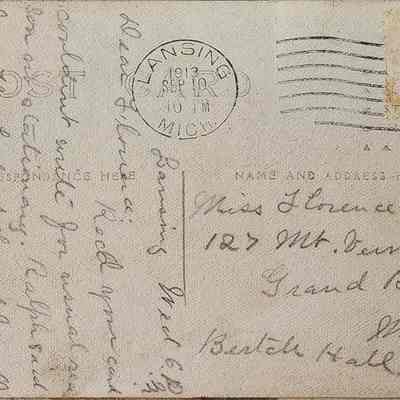 POST CARD
LANSING
1913
SEP 10
10 PM
MICH.
SPONDENCE HERE
NAME AND ADDRESS
Lansing Wed 6 P.
Dear Florence:
Recd your card
couldn't write for usual rea
son of stationary. Ralph said
Miss Florence
127 Mt. Vern
Grand R
Bertch Hall